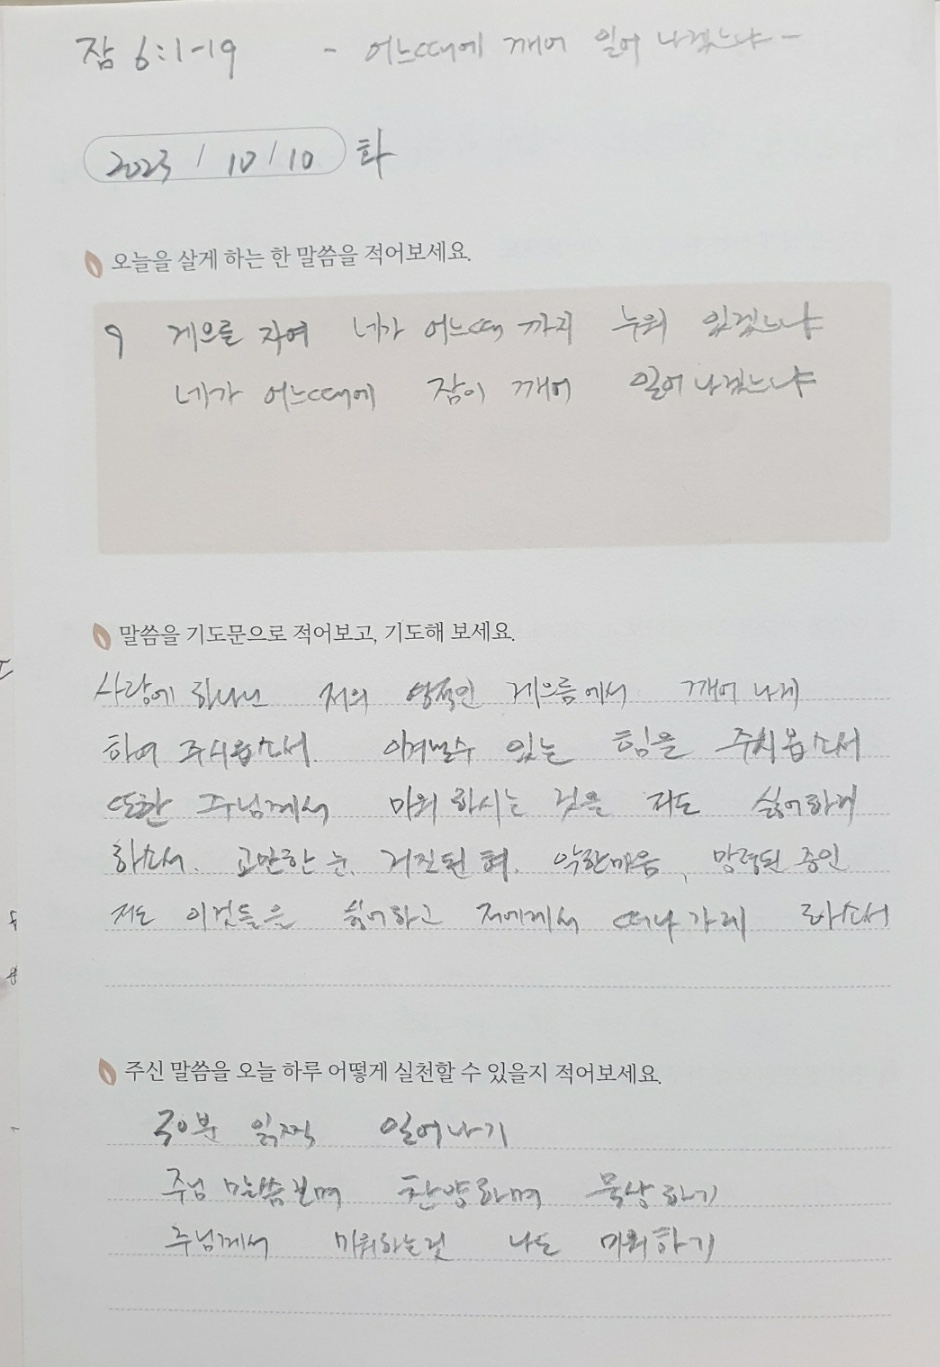 잠 6:1-19 - 어느때에 깨어 일어 나겠느냐 -
2023 / 10 / 10 화
오늘을 살게 하는 한 말씀을 적어보세요.
9 게으른 자여 네가 어느때 까지 누워 있겠느냐
네가 어느때에 잠이 깨어 일어나겠느냐
말씀을 기도문으로 적어보고, 기도해 보세요.
사랑에 하나님 저의 영적인 게으름에서 깨어 나게
하여 주시옵소서. 이겨낼수 있는 힘을 주시옵소서
또한 주님께서 미워 하시는 것은 저도 싫어하게
하소서. 교만한 눈, 거짓된 혀. 악한마음, 망령된 증인
저도 이것들은 싫어하고 저에게서 떠나 가게 하소서
주신 말씀을 오늘 하루 어떻게 실천할 수 있을지 적어보세요.
30분 일찍 일어나기
주님 말씀보며 찬양하며 묵상하기
주님께서 미워하는것 나도 미워하기